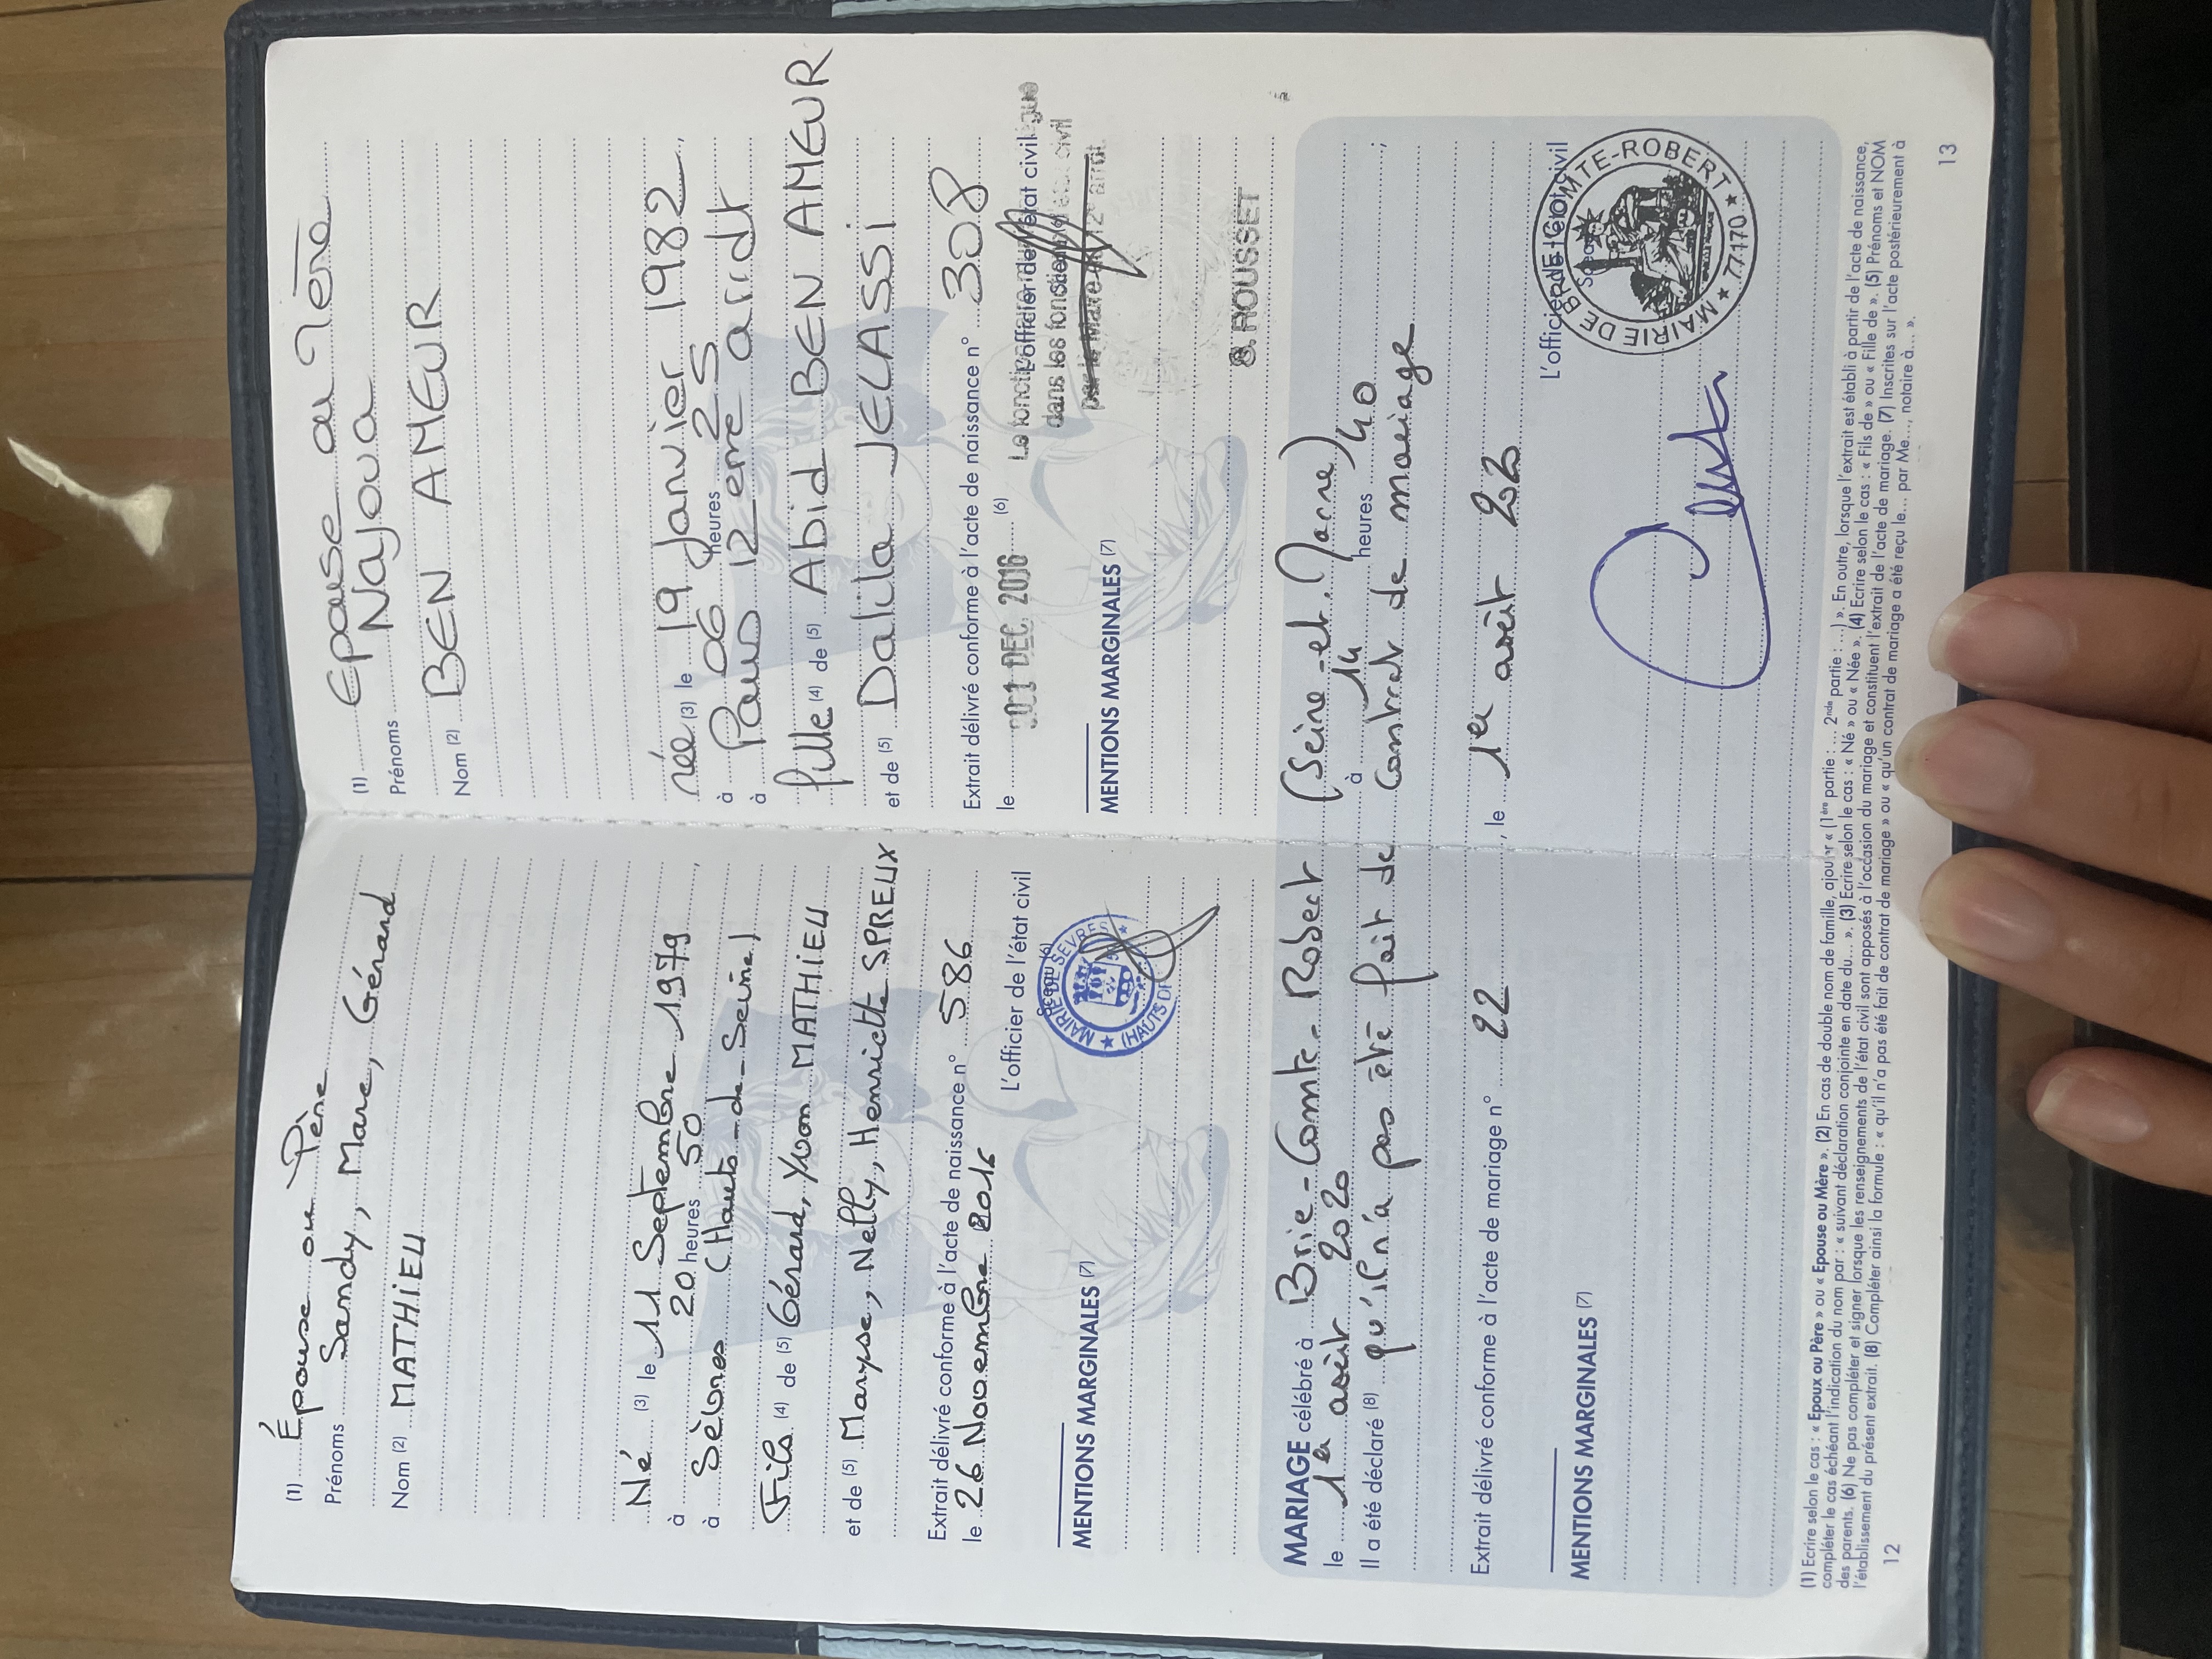 (1) Épouse ou Père
Prénoms Sandy, Marc, Gérard
Nom (2) MATHIEU
Né (3) le 11 Septembre 1979
à 20 heures 50
à Sèvres (Hauts-de-Seine)
Fils (4) de (5) Gérard, Yvon MATHIEU
et de (5) Maryse, Nelly, Henriette SPREUX
Extrait délivré conforme à l'acte de naissance n° 586
le 26 Novembre 2016
L'officier de l'état civil
Sceau (6)
MAIRIE DE SÈVRES
(HAUTS DE
MENTIONS MARGINALES (7)
(1) Epouse ou Mère
Prénoms Najoua
Nom (2) BEN AMEUR
née (3) le 19 Janvier 1982
à 06 heures 25
à Paris 12 eme arrdt
fille (4) de (5) Abid BEN AMEUR
et de (5) Dalila JELASSI
Extrait délivré conforme à l'acte de naissance n° 308
le 01 DEC 2016 (6)
L'officier de l'état civil
dans les fonctions d'état civil
par le Maire du 12e arrdt
MENTIONS MARGINALES (7)
ROUSSET
MARIAGE célébré à Brie-Comte-Robert (Seine-et-Marne)
le 1er août 2020 à 14 heures 40 ;
Il a été déclaré (8) qu'il n'a pas été fait de contrat de mariage
Extrait délivré conforme à l'acte de mariage n° 22, le 1er août 2020
L'officier de l'état civil
Sceau
MAIRIE DE BRIE-COMTE-ROBERT
77170
MENTIONS MARGINALES (7)
(1) Ecrire selon le cas : « Epoux ou Père » ou « Epouse ou Mère ». (2) En cas de double nom de famille, ajouter « (1ère partie : ... 2nde partie : ...) ». En outre, lorsque l'extrait est établi à partir de l'acte de naissance,
compléter le cas échéant l'indication du nom par : « suivant déclaration conjointe en date du... ». (3) Ecrire selon le cas : « Né » ou « Née ». (4) Ecrire selon le cas : « Fils de » ou « Fille de ». (5) Prénoms et NOM
des parents. (6) Ne pas compléter et signer lorsque les renseignements de l'état civil sont apposés à l'occasion du mariage et constituent l'extrait de l'acte de mariage. (7) Inscrites sur l'acte postérieurement à
l'établissement du présent extrait. (8) Compléter ainsi la formule : « qu'il n'a pas été fait de contrat de mariage » ou « qu'un contrat de mariage a été reçu le... par Me..., notaire à... ».
12
13